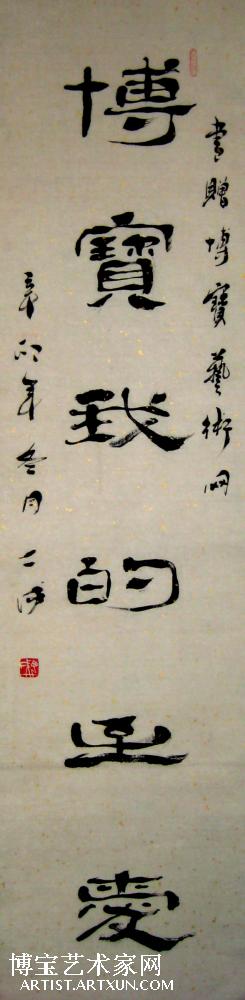 書贈博寶藝術网
博寶我的至愛
辛卯年冬月
博宝艺术家网
ARTIST.ARTXUN.COM